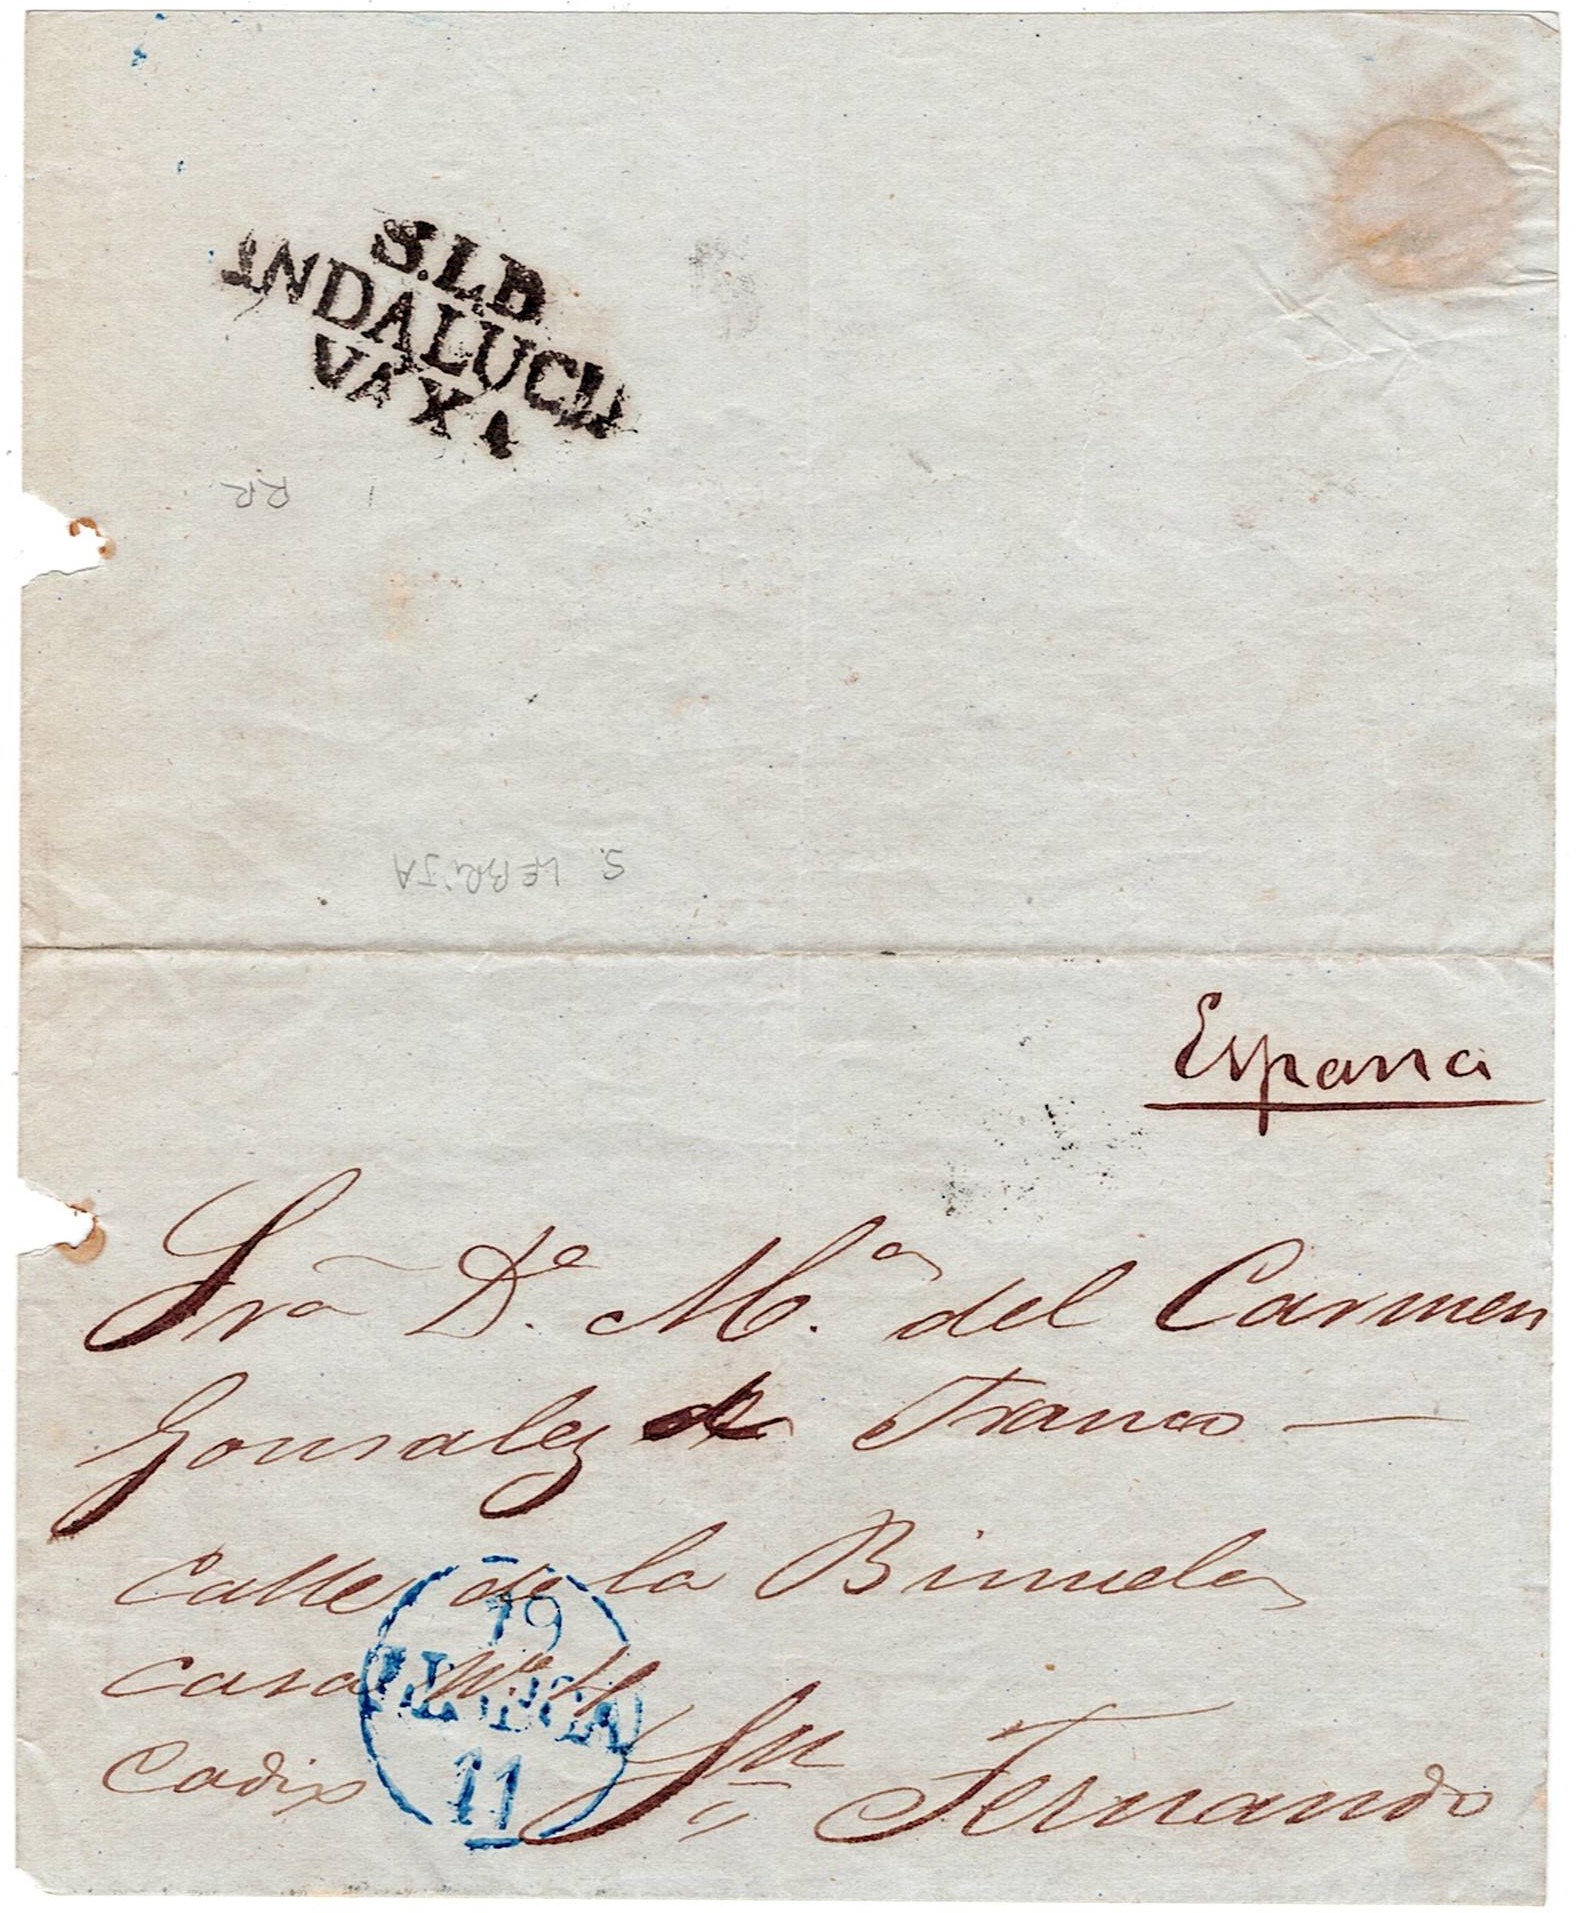 S.L.B
ANDALUCIA
VAXA
RR
S. LEBRIJA
España
Srã Dª. Mª. del Carmen
Gonzalez de Franco
Calle de la Binuela
casa Nº 4
Cadix Sn Fernando
19
11